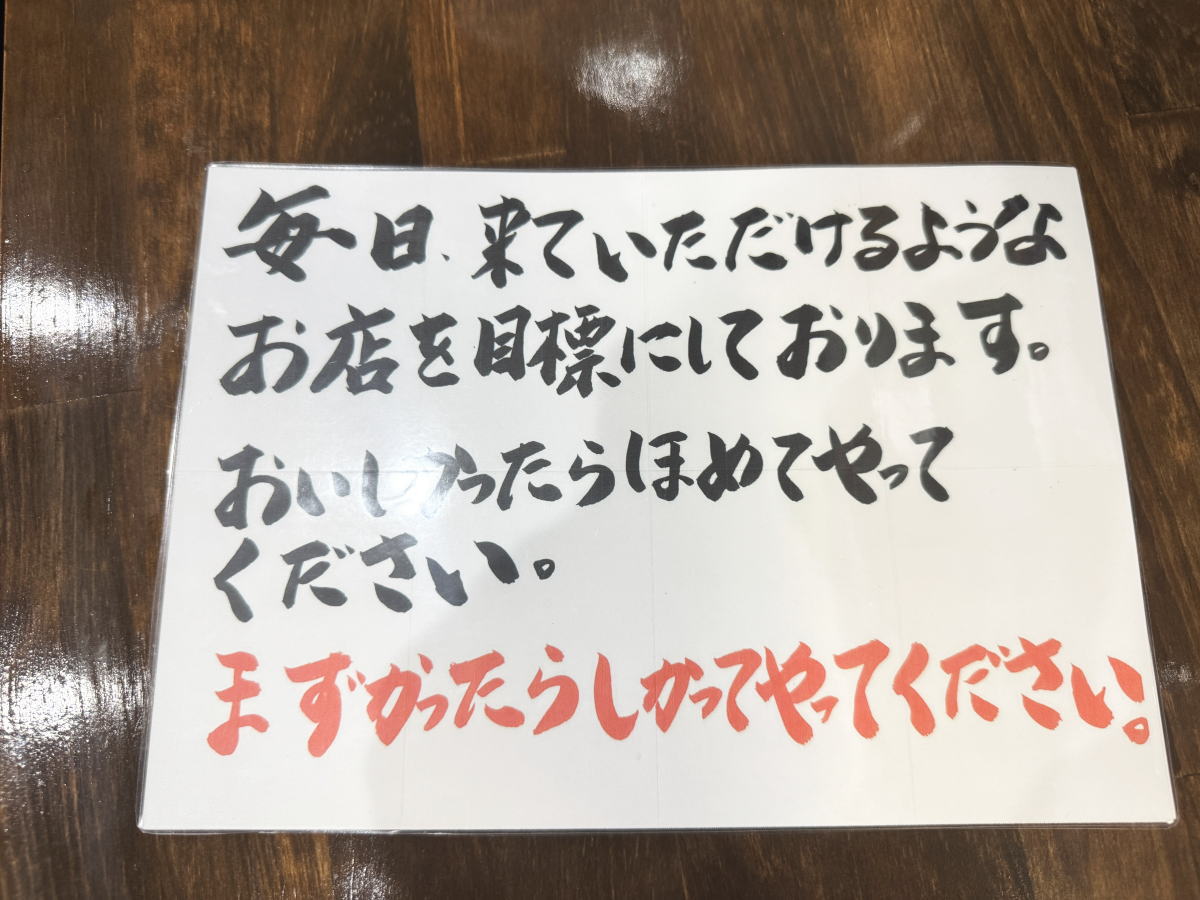 毎日、来ていただけるような
お店を目標にしております。
おいしかったらほめてやって
ください。
まずかったらしかってやってください。